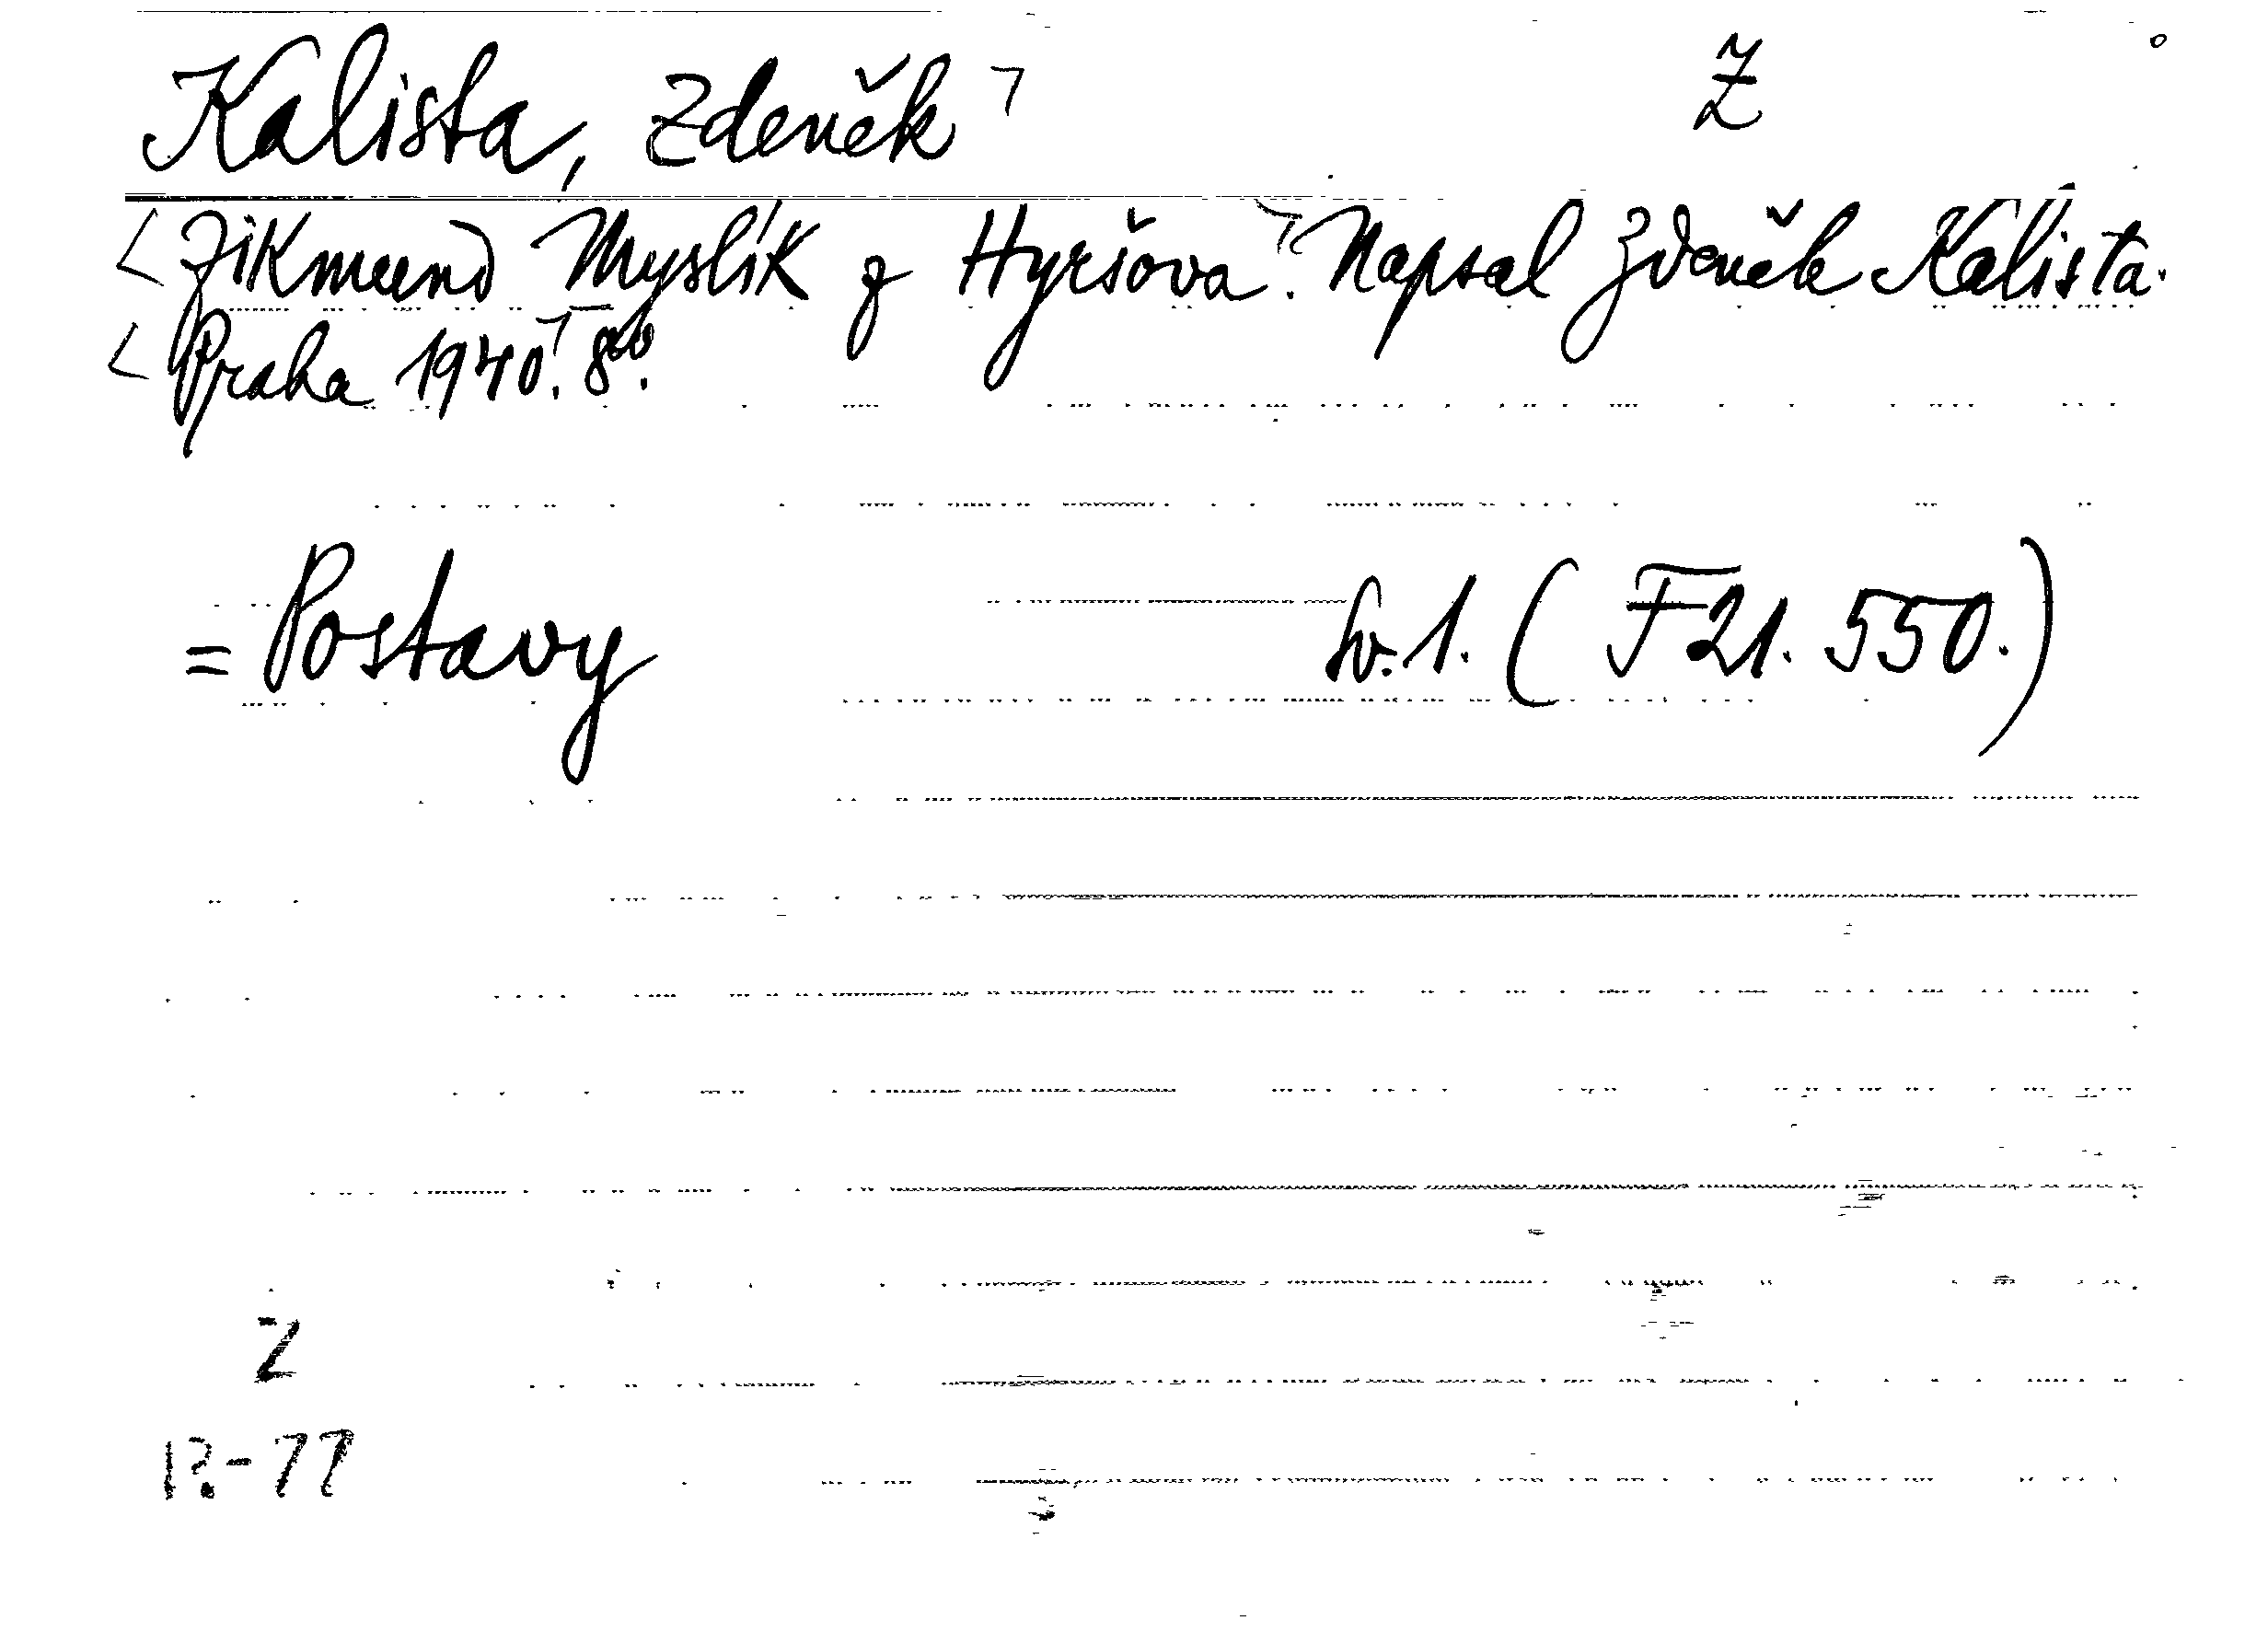 Kalista, Zdeněk ㄱ Z
< Zikmund Myslík z Hyršova ㄱ. Napsal Zdeněk Kalista.
< Praha 1940 ㄱ. 8°.
= Postavy sv. 1. (F 21. 550.)
Z